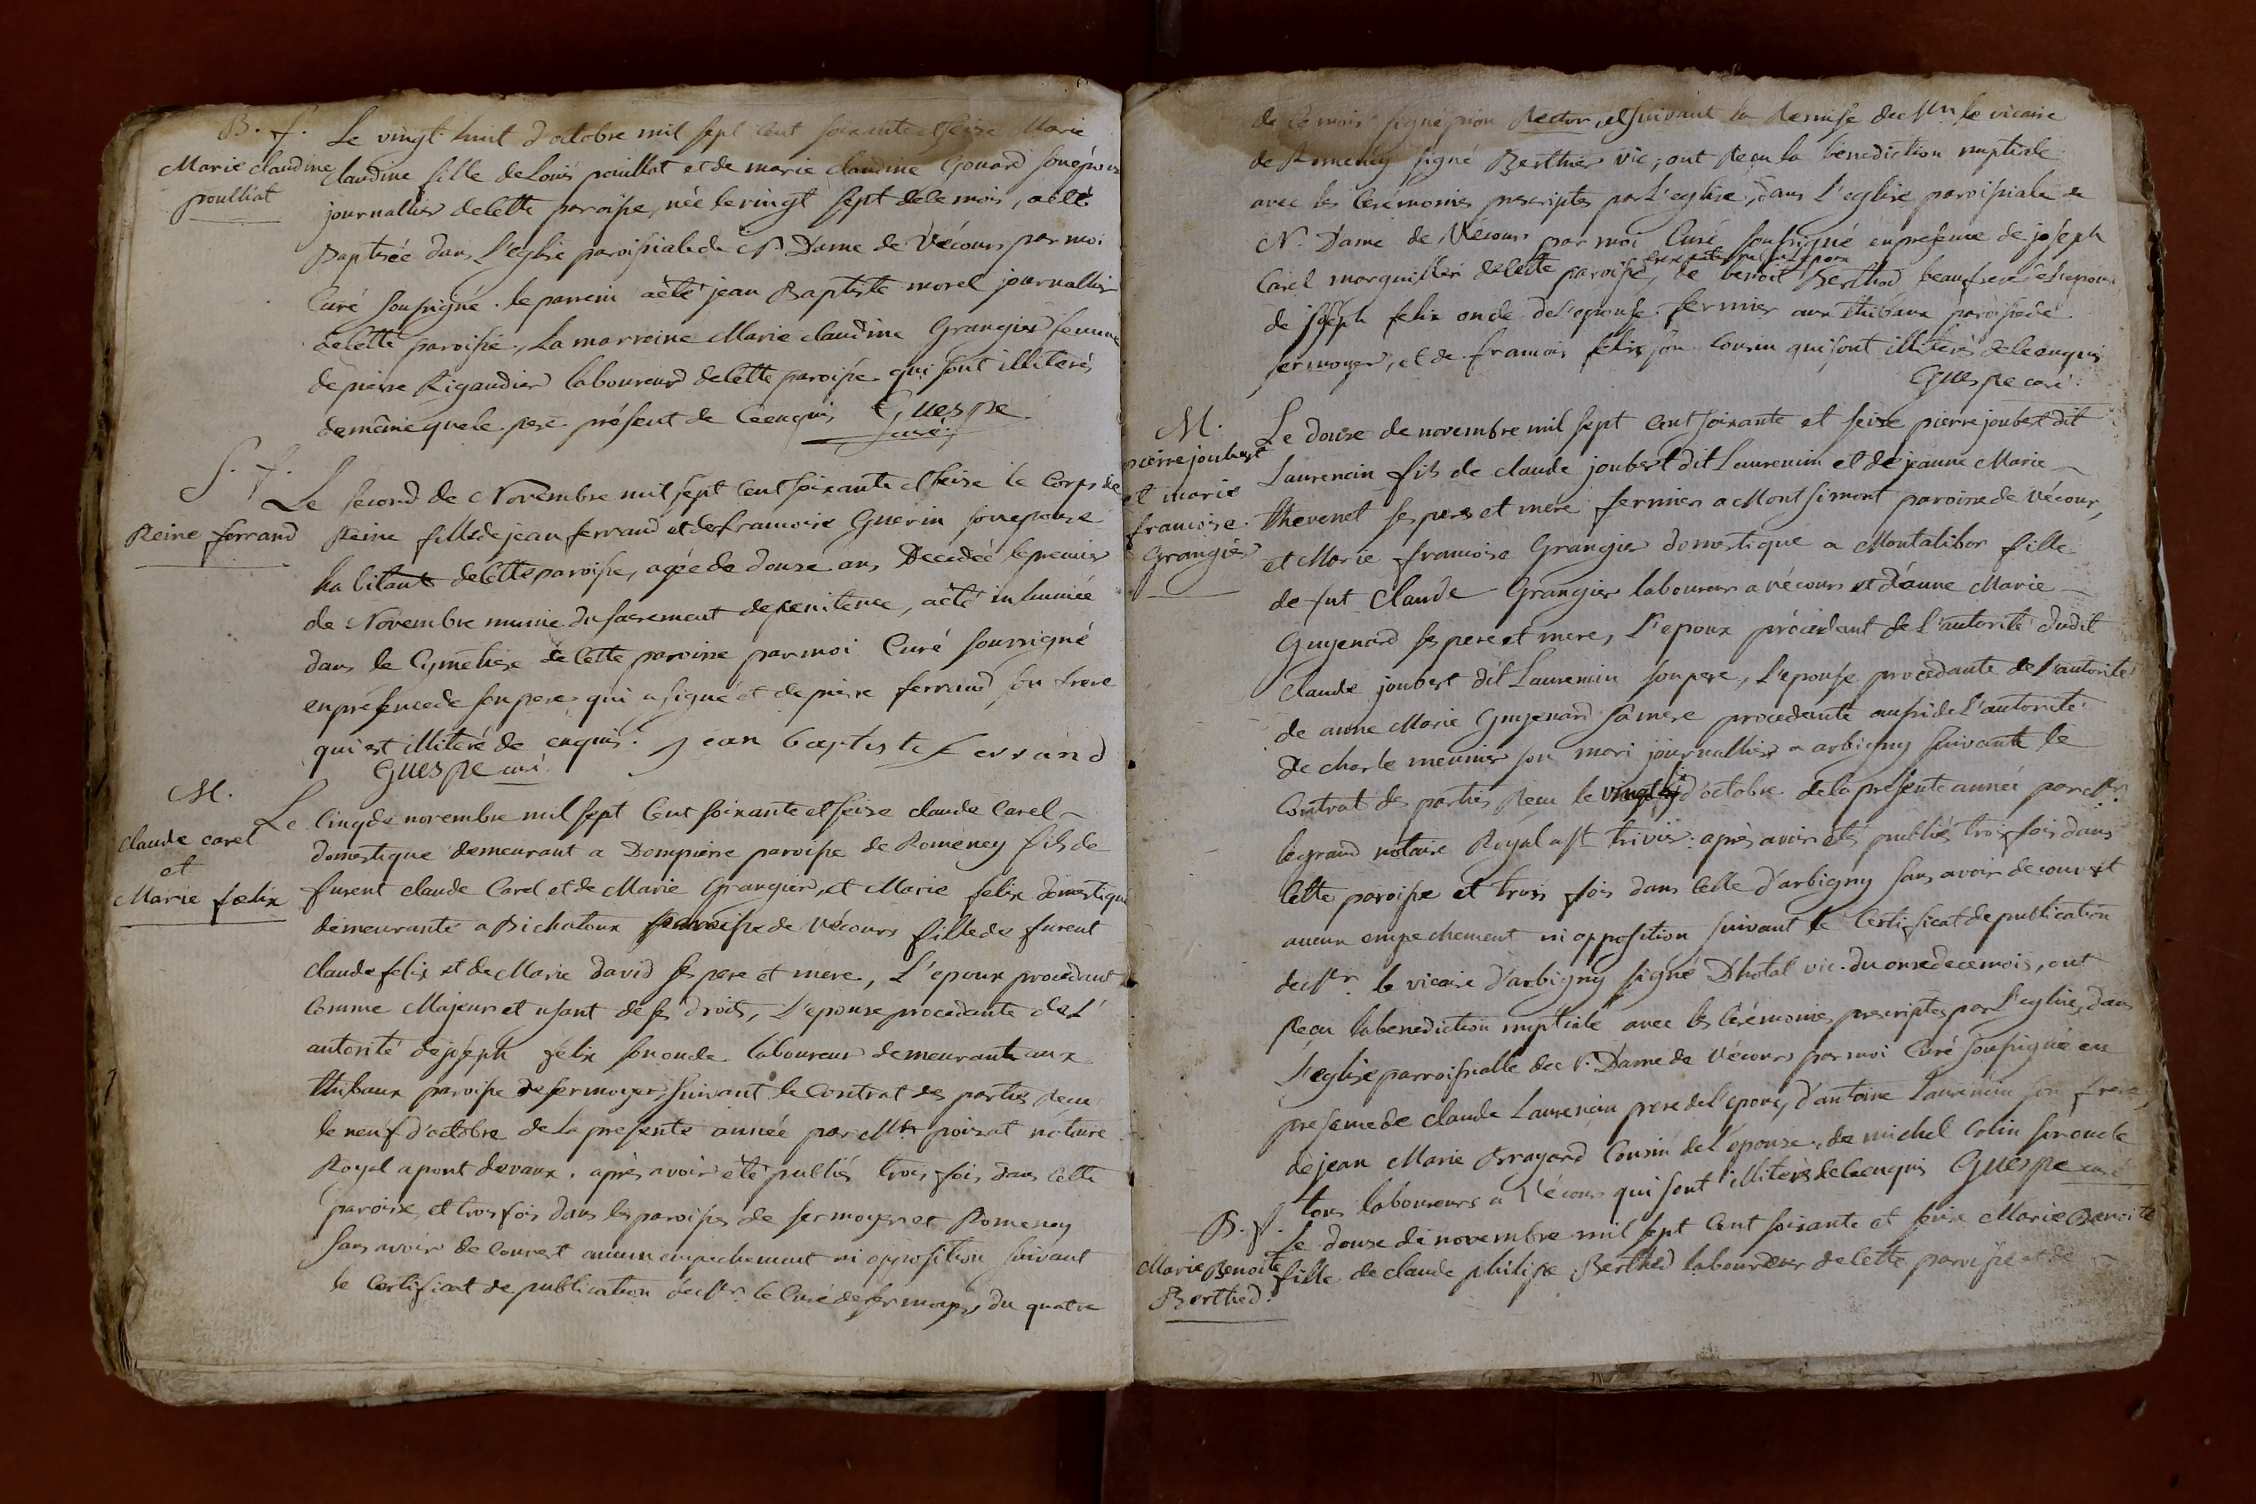 B. f.
Marie claudine
poulliat
Le vingt huit d'octobre mil sept cent soixante et seise Marie
claudine fille de Loüis paulliat et de marie claudine Gonard son epouse
journallier de cette paroisse, née le vingt sept de ce mois, a été
Baptisée dans l'eglise paroissiale de N. Dame de Vécours par moi
Curé soussigné. le parrein a été jean Baptiste morel journallier
de cette paroisse, La marreine Marie claudine Grangier femme
de pierre Rigaudier laboureur de cette paroisse qui sont illiterés
de même que le pere présent de ce enquis Guespe
curé.
S. f.
Reine ferrand
Le second de Novembre mil sept cent soixante et seise le Corps de
Reine fille de jean ferrand et de francoise Guerin son epouse
habitant de cette paroisse, agée de douze ans Decedée le premier
de Novembre munie du sacrement de penitence, a été inhumée
dans le Cymetiere de cette paroisse par moi Curé soussigné
en présence de son pere qui a signé et de pierre ferrand son frere
qui est illiteré de enquis. jean baptiste ferrand
Guespe curé.
M.
claude carel
et
Marie fœlix
Le cinq de novembre mil sept cent soixante et seise claude Carel
domestique demeurant a Dompierre paroisse de Romeney fils de
furent claude Carel et de Marie Grangier, et Marie felix domestique
demeurante a Bichatoux paroisse de Vécours fille de furent
claude felix et de Marie david ses pere et mere, L'epoux procedant
comme Majeur et usant de ses droits, L'epouse procedante de L'
autorité de joseph felix son oncle laboureur demeurant aux
thibaux paroisse de sermoyer, suivant le Contrat des parties recu
le neuf d'octobre de la présente année par Mtr poizat notaire
Royal a pont devaux. après avoir été publiés trois fois dans cette
paroisse et trois fois dans les paroisses de sermoyer et Romeney
sans avoir decouvert aucun empechement ni opposition suivant
le certificat de publication de Mr. le Curé de sermoyer, du quatre
de ce mois signé Rector, et suivant la Remise de Mr le vicaire
de Romeney signé Berthier vic; ont Reçu la bénédiction nuptiale
avec les cérémonies prescriptes par L'eglise, dans l'eglise paroissiale de
N. Dame de Vécours par moi Curé soussigné en présence de joseph
Carel marguillier de cette paroisse, de benoit Berthod beaufrere de l'epoux
de joseph felix oncle de l'epouse fermier aux thibaux paroisse de
sermoyer, et de francois felix son cousin qui sont illiterés de ce enquis
Guespe curé.
M.
pierre joubert
et marie
francoise
Grangier
Le douze de novembre mil sept cent soixante et seize pierre joubert dit
Laurencin fils de claude joubert dit Laurencin et de jeanne Marie
thevenet ses pere et mere fermiers a Montsimont paroisse de vécour,
et Marie francoise Grangier domestique a Montalibor fille
de fut Claude Grangier laboureur a vécours et d'anne Marie
Guyenard ses pere et mere, l'epoux procedant de L'autorité dudit
Claude joubert dit Laurencin son pere, L'epouse procedante de l'autorité
de anne Marie Guyenard sa mere procedante aussi de L'autorité
de charle meunier son mari journallier a arbigny suivant le
Contrat des parties Recu le vingt d'octobre de la présente année par Mr.
legrand notaire Royal a st trivier. après avoir été publiés trois fois dans
cette paroisse et trois fois dans celle d'arbigny sans avoir decouvert
aucun empechement ni opposition suivant le certificat de publication
de Mr. le vicaire d'arbigny signé Dhotal vic. du onze de ce mois, ont
Recu la benediction nuptiale avec les cérémonies prescriptes par l'eglise, dans
l'eglise parroissialle de N. Dame de Vécours par moi Curé soussigné en
présence de claude Laurencin pere de l'epoux, d'antoine Laurencin son frere,
de jean Marie Brayard Cousin de l'épouse, de michel Colin son oncle
tous laboureurs a Vécours qui sont illiterés de ce enquis Guespe curé
B. f.
Marie Benoite
Berthod.
Le douse de novembre mil sept cent soixante et seise Marie Benoite
fille de claude philipe Berthod laboureur de cette paroisse et de